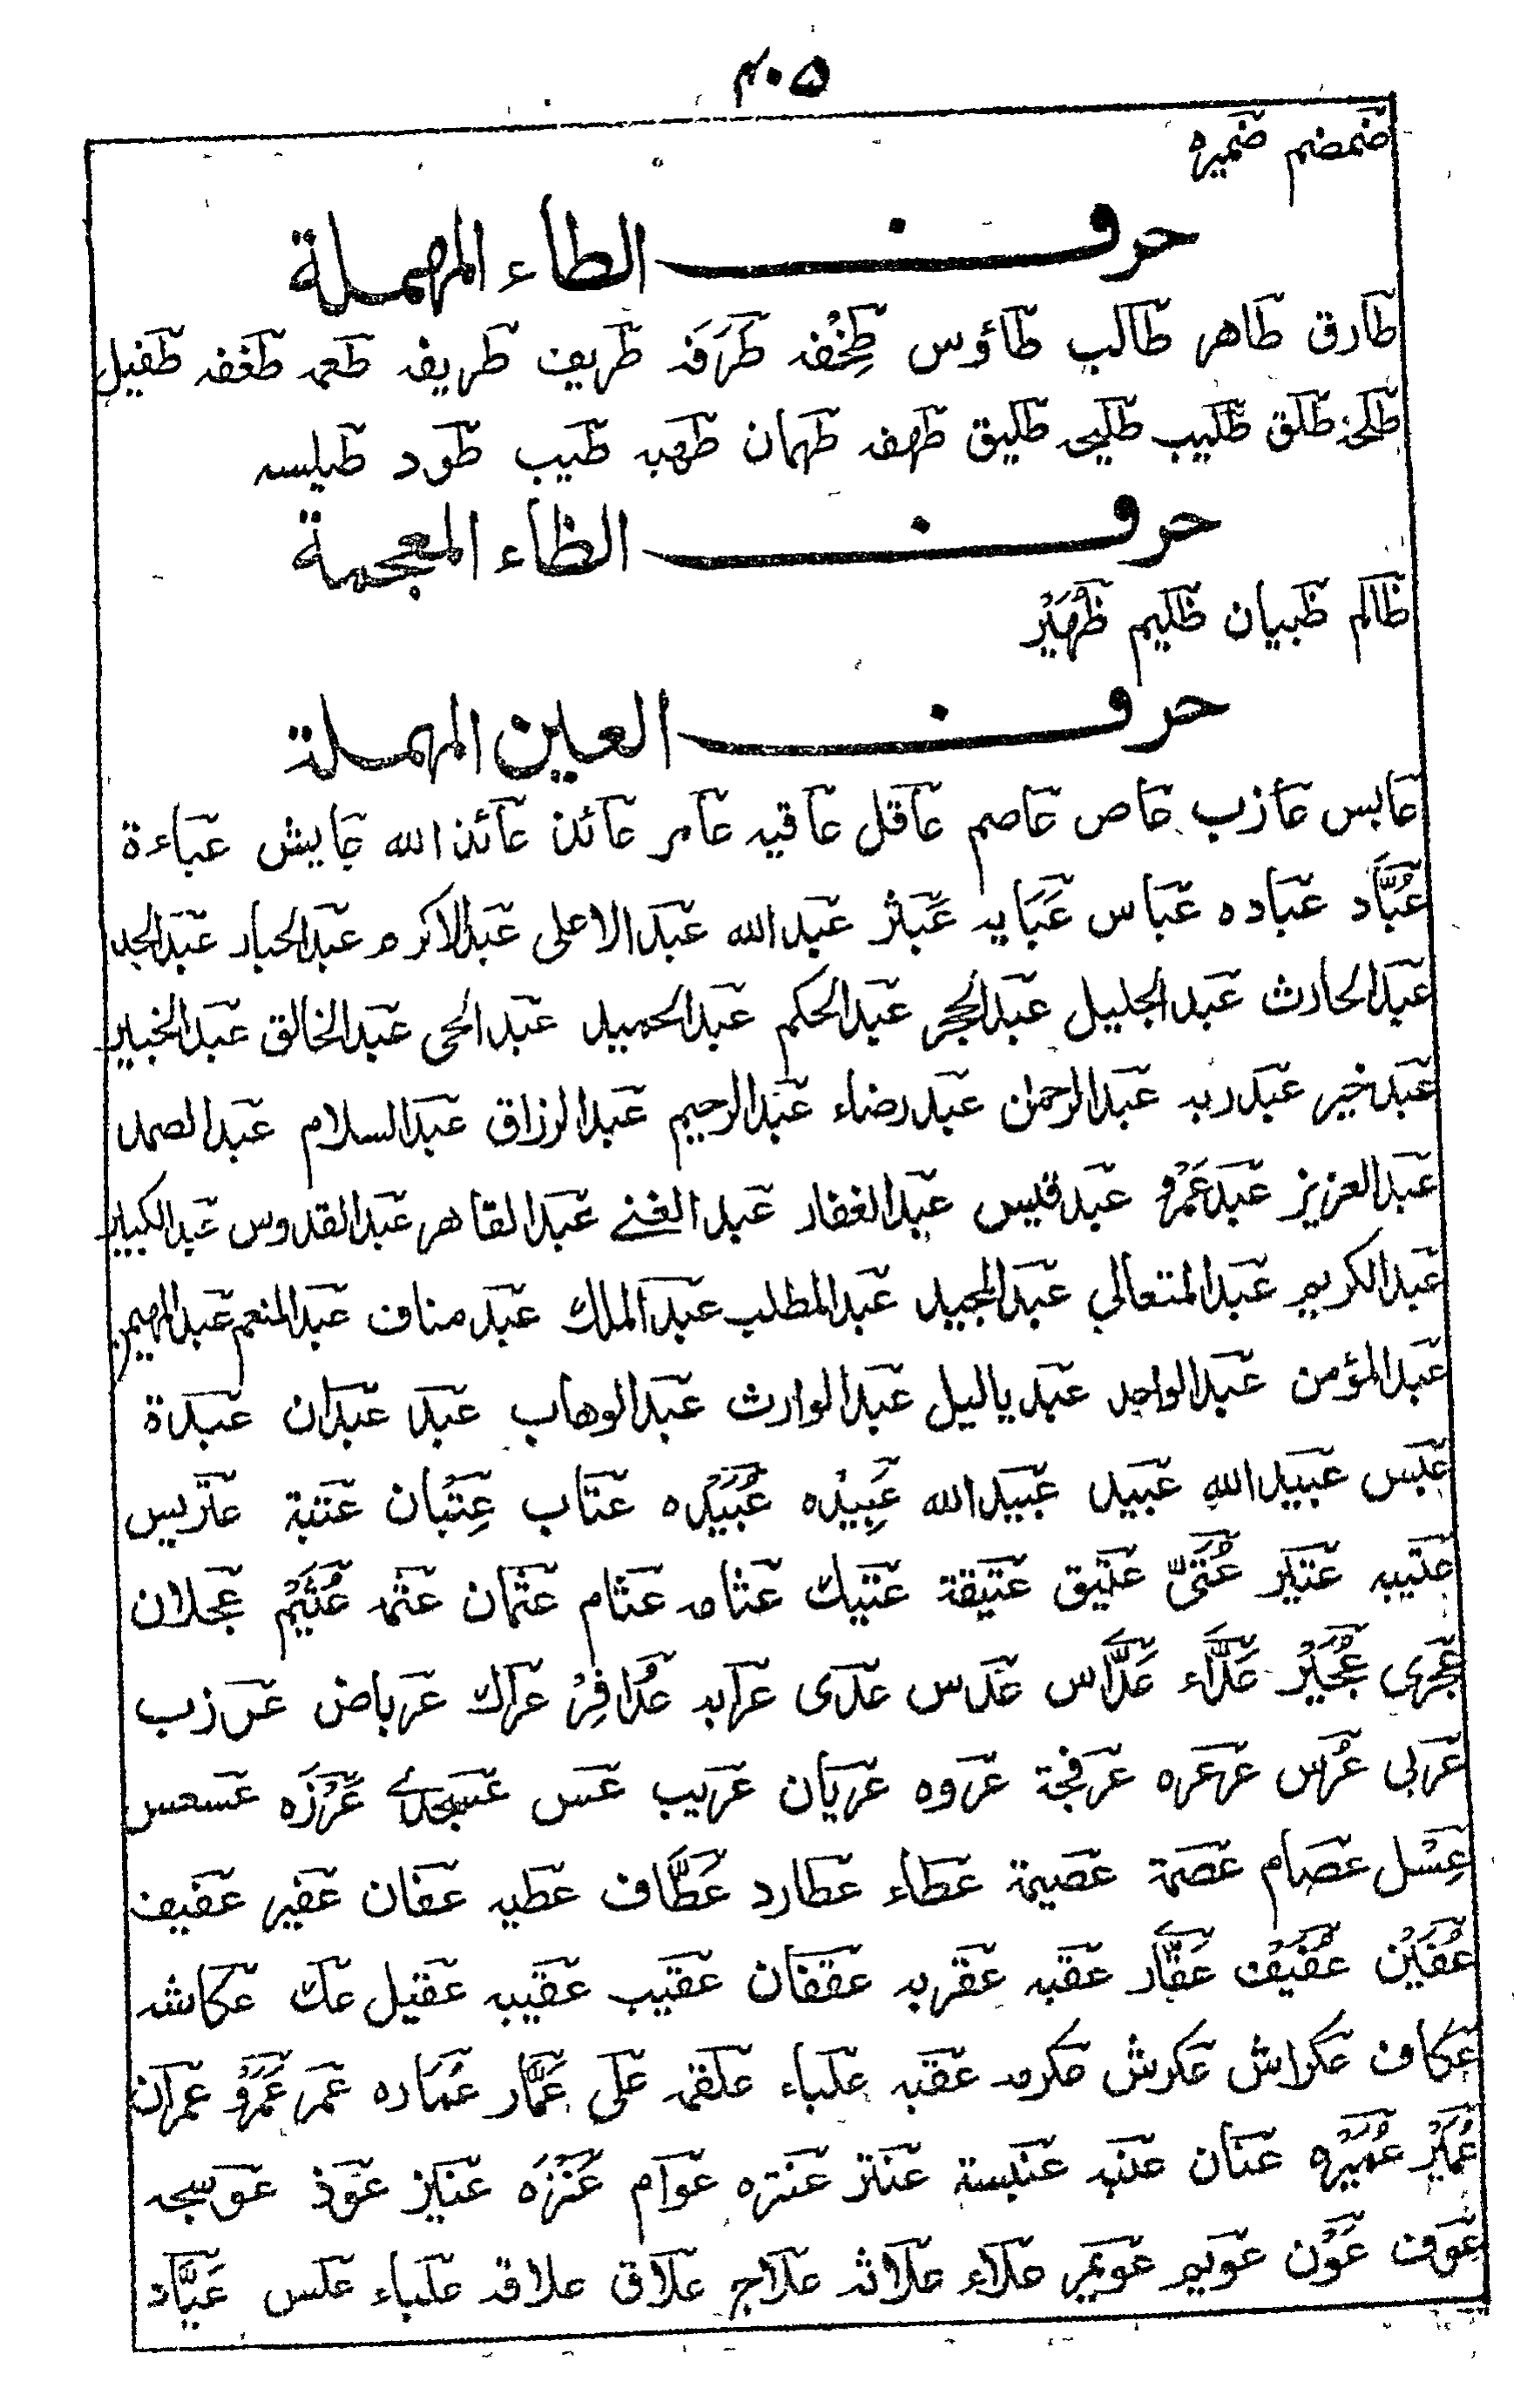 ٤٠٥
ضمضم ضميره
حرف الطاء المهملة
طارق طاهر طالب طاؤس طِخْفه طَرَفَه طريف طريفه طعمه طغفه طفيل
طلحة طلق طليب طليحه طليق طهفه طهمان طهيه طيب طود طيلسه
حرف الظاء المعجمة
ظالم ظبيان ظليم ظُهَيْر
حرف العين المهملة
عابس عازب عاص عاصم عاقل عاقيه عامر عائذ عائذ الله عايش عباءة
عُبَّاد عباده عباس عَبَايه عَبثر عبد الله عبد الاعلى عبد الاكرم عبد الجبار عبد الجد
عبد الحارث عبد الجليل عبد الحجر عبد الحكم عبد الحميد عبد الحى عبد الخالق عبد الخبير
عبد خير عبد ربه عبد الرحمن عبد رضاء عبد الرحيم عبد الرزاق عبد السلام عبد الصمد
عبد العزيز عبد عَمْرو عبد قيس عبد الغفار عبد الغنے عبد القاهر عبد القدوس عبد الكبير
عبد الكريم عبد المتعالي عبد المجيد عبد المطلب عبد الملك عبد مناف عبد المنعم عبد المهيمن
عبد المؤمن عبد الواحد عبد ياليل عبد الوارث عبد الوهاب عبد عبدان عبدة
عبس عبيد الله عبيد عبيد الله عَبِيْده عُبَيْده عتاب عِتْبان عتبة عتريس
عتيبه عتير عُتَىّ عتيق عتيقة عتيك عثامه عثام عثمان عثمه عُثَيْم عجلان
عجرى عُجَيْر عَدَّاء عَدَّاس عدس عدى عرابه عُدافِرْ عراك عرباض عرزب
عربى عُرس عرعره عرفجة عروه عريان عريب عس عسجدے عَزْرَه عسعس
عِسْل عصام عصمة عصيمة عطاء عطارد عَطَّاف عطيه عفان عفير عفيف
عُفَيْن عُفَيْف عَقَّار عقبه عقربه عقفان عقيب عقيبه عقيل عك عكاشه
عكاف عكراش عكرش عكرمه عقبه علباء علقمه على عَمَّار عُمَاره عمر عَمْرو عمران
عُمَيْر عُمَيْره عنان عنبه عنبسة عنتر عنتره عوام عَنَزَه عنيز عوذ عوسجه
عوف عَوْن عويم عويمر علاء علاثه علاج علاق علاقه علباء علس عَيَّاد